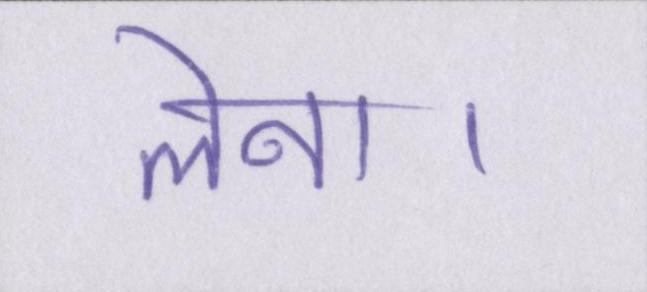 लेना।